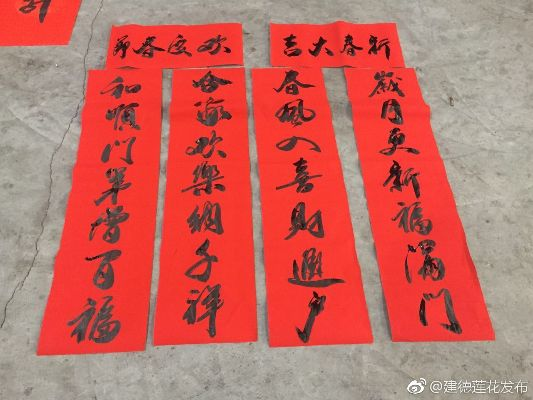 新春大吉
欢度春節
歲月更新福满门
春風入喜財進户
合家欢樂纳千祥
和順门第增百福
@建德莲花发布